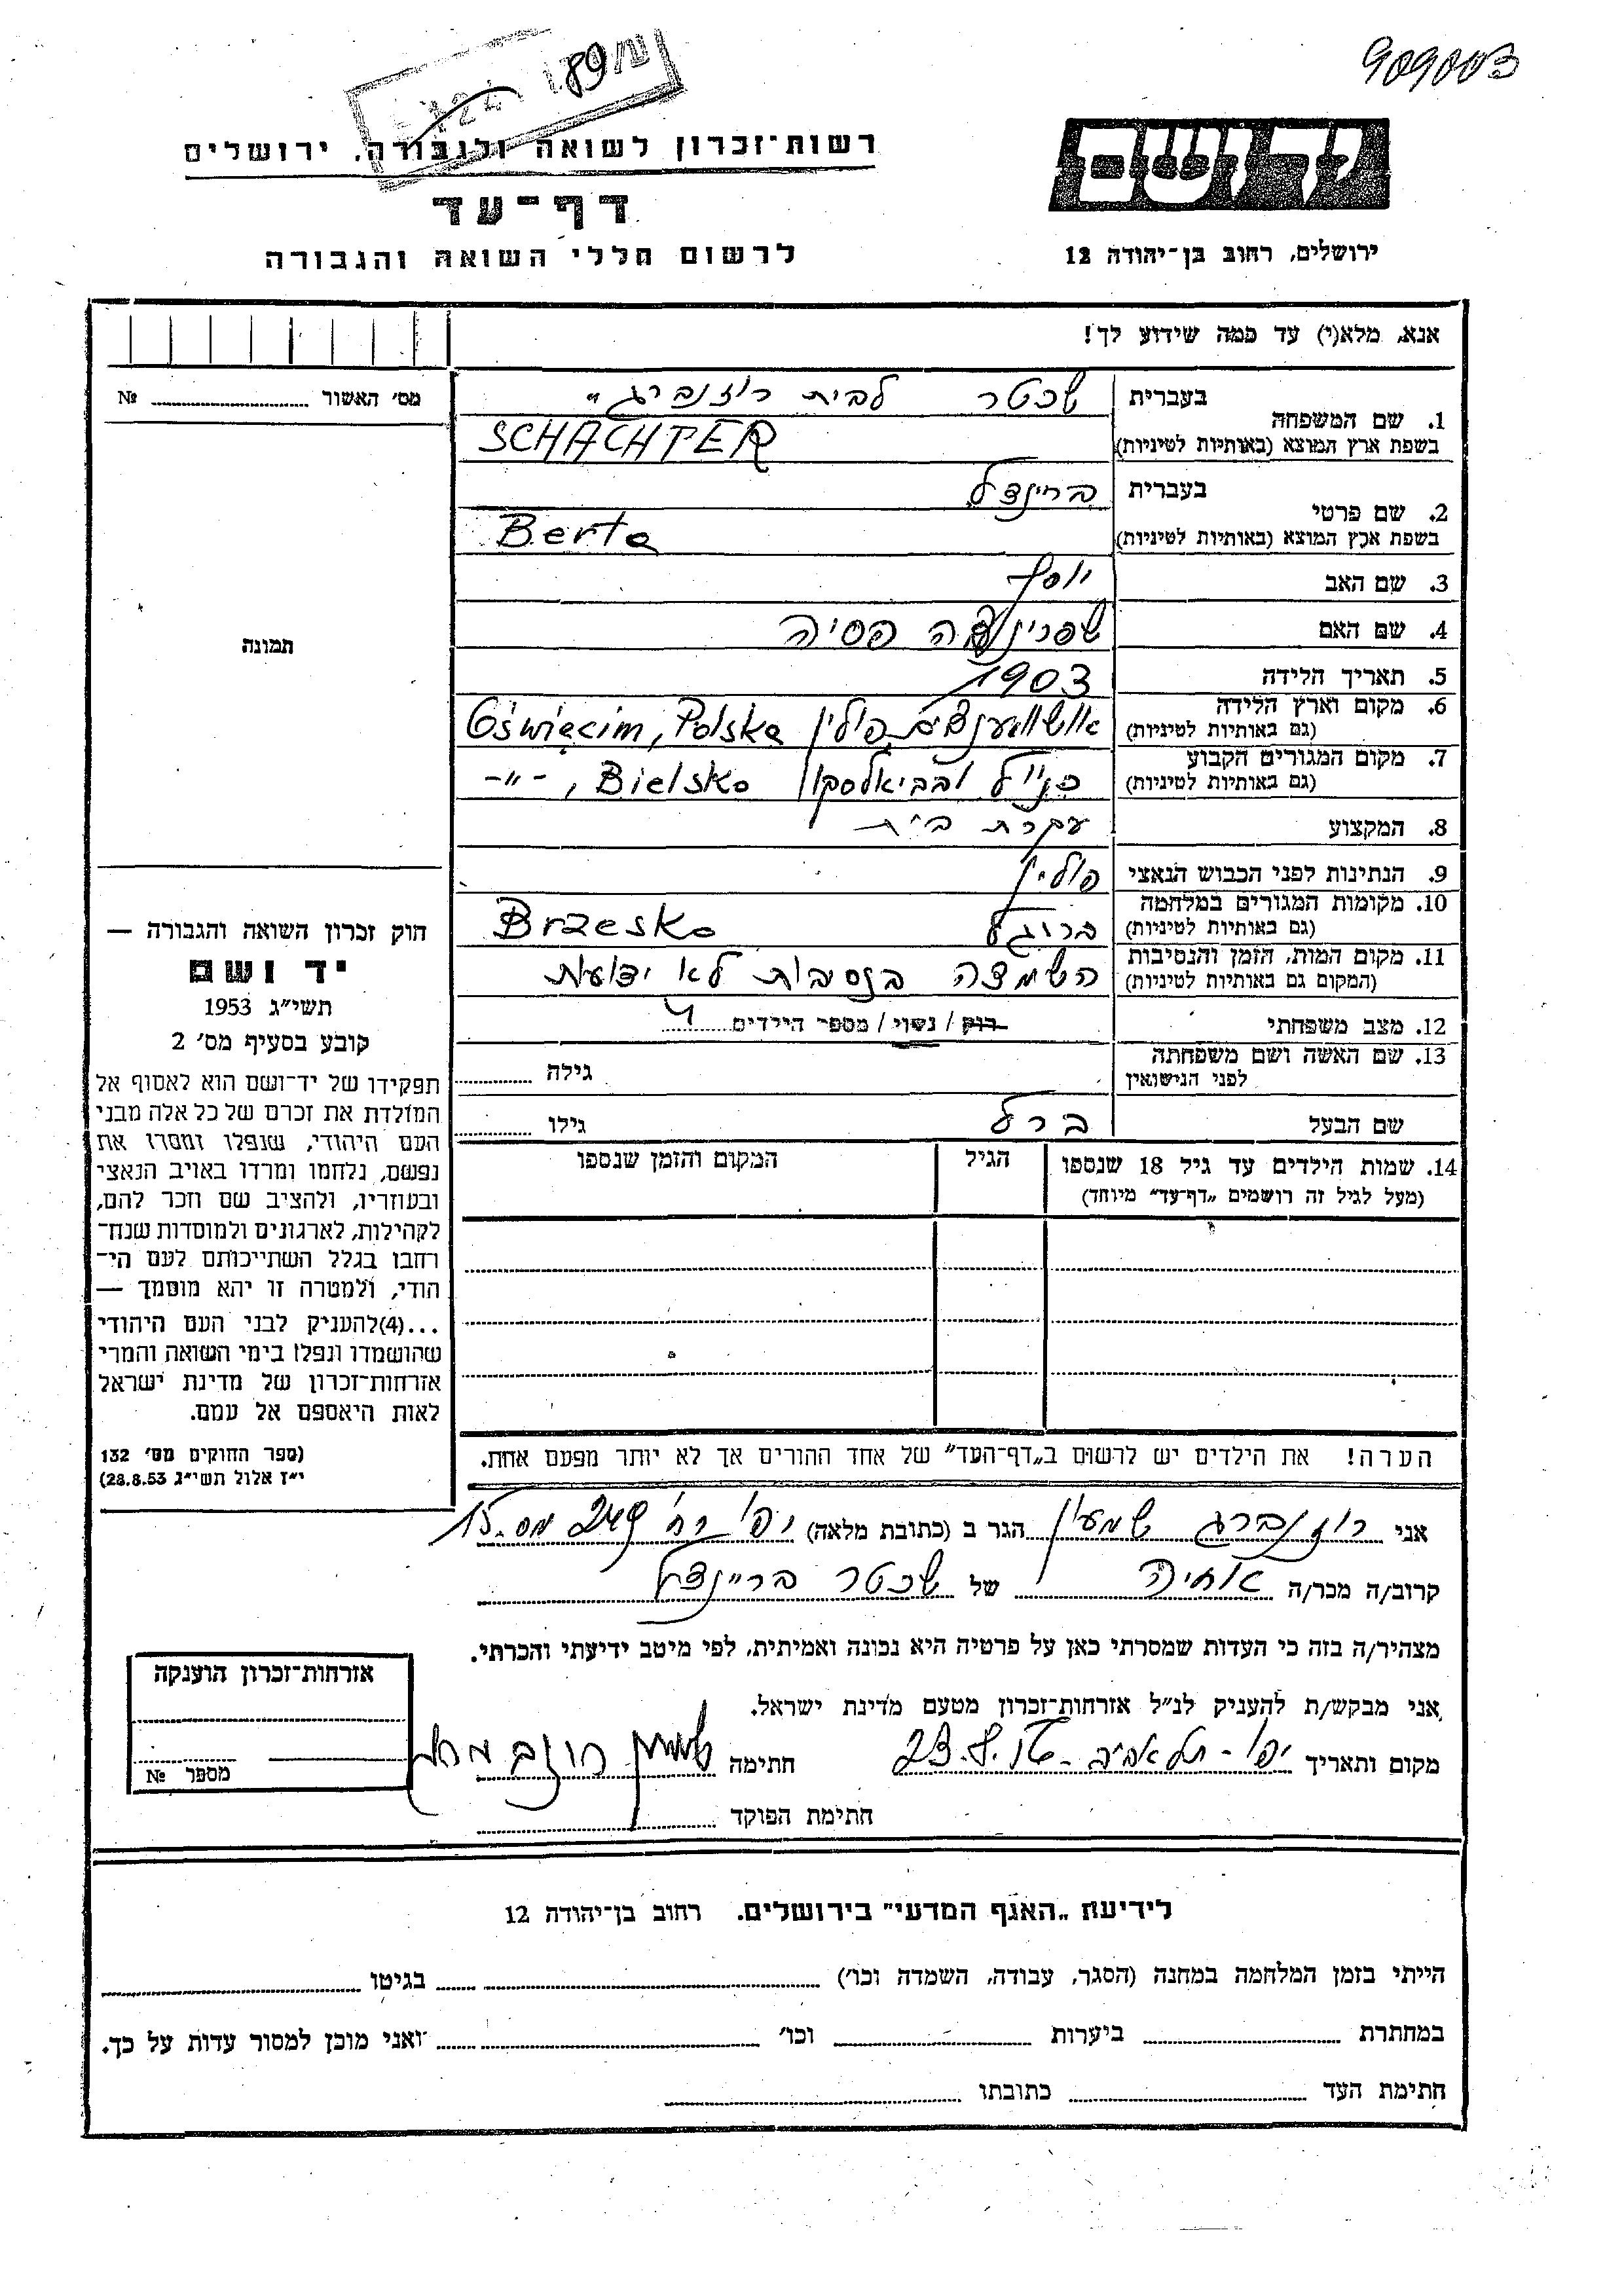 909003
89
רשות־זכרון לשואה ולגבורה, ירושלים
דף־עד
לרשום חללי השואה והגבורה
ידושם
ירושלים, רחוב בן־יהודה 12
אנא, מלא(י) עד כמה שידוע לך!
מס׳ האשור № 
1. שם המשפחה בעברית שכטר לבית רוזנברג
בשפת ארץ המוצא (באותיות לטיניות) SCHACHTER
2. שם פרטי בעברית בריינדל
בשפת ארץ המוצא (באותיות לטיניות) Berta
3. שם האב יוסף
4. שם האם פסיה
5. תאריך הלידה 1903
6. מקום וארץ הלידה (גם באותיות לטיניות) פולין Oświęcim, Polska
7. מקום המגורים הקבוע (גם באותיות לטיניות) כנ״ל Bielsko, -״-
8. המקצוע עקרת בית
9. הנתינות לפני הכבוש הנאצי פולין
10. מקומות המגורים במלחמה (גם באותיות לטיניות) Brzesko
11. מקום המות, הזמן והנסיבות (המקום גם באותיות לטיניות) הושמדה בנסבות לא ידועות
12. מצב משפחתי רווק / נשוי / מספר הילדים 4
13. שם האשה ושם משפחתה לפני הנישואין גילה
שם הבעל ברל גילו
14. שמות הילדים עד גיל 18 שנספו הגיל המקום והזמן שנספו
(מעל לגיל זה רושמים „דף־עד״ מיוחד)
הערה! את הילדים יש לרשום ב„דף־העד״ של אחד ההורים אך לא יותר מפעם אחת.
תמונה
חוק זכרון השואה והגבורה —
יד ושם
תשי״ג 1953
קובע בסעיף מס׳ 2
תפקידו של יד־ושם הוא לאסוף אל
המולדת את זכרם של כל אלה מבני
העם היהודי, שנפלו ומסרו את
נפשם, נלחמו ומרדו באויב הנאצי
ובעוזריו, ולהציב שם וזכר להם,
לקהילות, לארגונים ולמוסדות שנח־
רבו בגלל השתייכותם לעם הי־
הודי, ולמטרה זו יהא מוסמך —
...(4)להעניק לבני העם היהודי
שהושמדו ונפלו בימי השואה והמרי
אזרחות־זכרון של מדינת ישראל
לאות היאספם אל עמם.
(ספר החוקים מס׳ 132
י״ז אלול תשי״ג 28.8.53)
אני רוזנברג שמעון הגר ב (כתובת מלאה) יפו רח׳ 249 מס. 15
קרוב/ה מכר/ה אחיה של שכטר בריינדל
מצהיר/ה בזה כי העדות שמסרתי כאן על פרטיה היא נכונה ואמיתית, לפי מיטב ידיעתי והכרתי.
אני מבקש/ת להעניק לנ״ל אזרחות־זכרון מטעם מדינת ישראל.
מקום ותאריך יפו - תל אביב חתימה
חתימת הפוקד
אזרחות־זכרון הוענקה
מספר №
לידיעת „האגף המדעי״ בירושלים. רחוב בן־יהודה 12
הייתי בזמן המלחמה במחנה (הסגר, עבודה, השמדה וכו׳) בגיטו
במחתרת ביערות וכו׳ ואני מוכן למסור עדות על כך.
חתימת העד כתובתו